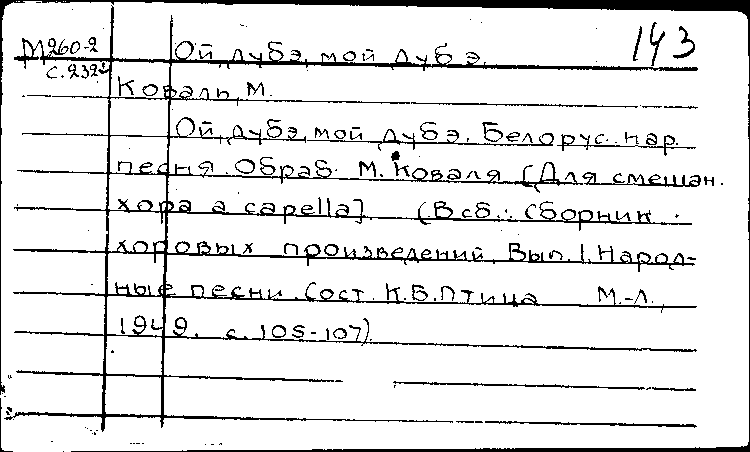 М260-2 Ой, дубэ, мой дубэ. 143
с. 2321
Коваль, М.
Ой, дубэ, мой дубэ. Белорус. нар.
песня. Обраб. М. Коваля [Для смешан.
хора a capella]. (В сб.: Сборник
хоровых произведений. Вып. 1. Народ-
ные песни. Сост. К.Б. Птица М.-Л.,
1949. с. 105-107)